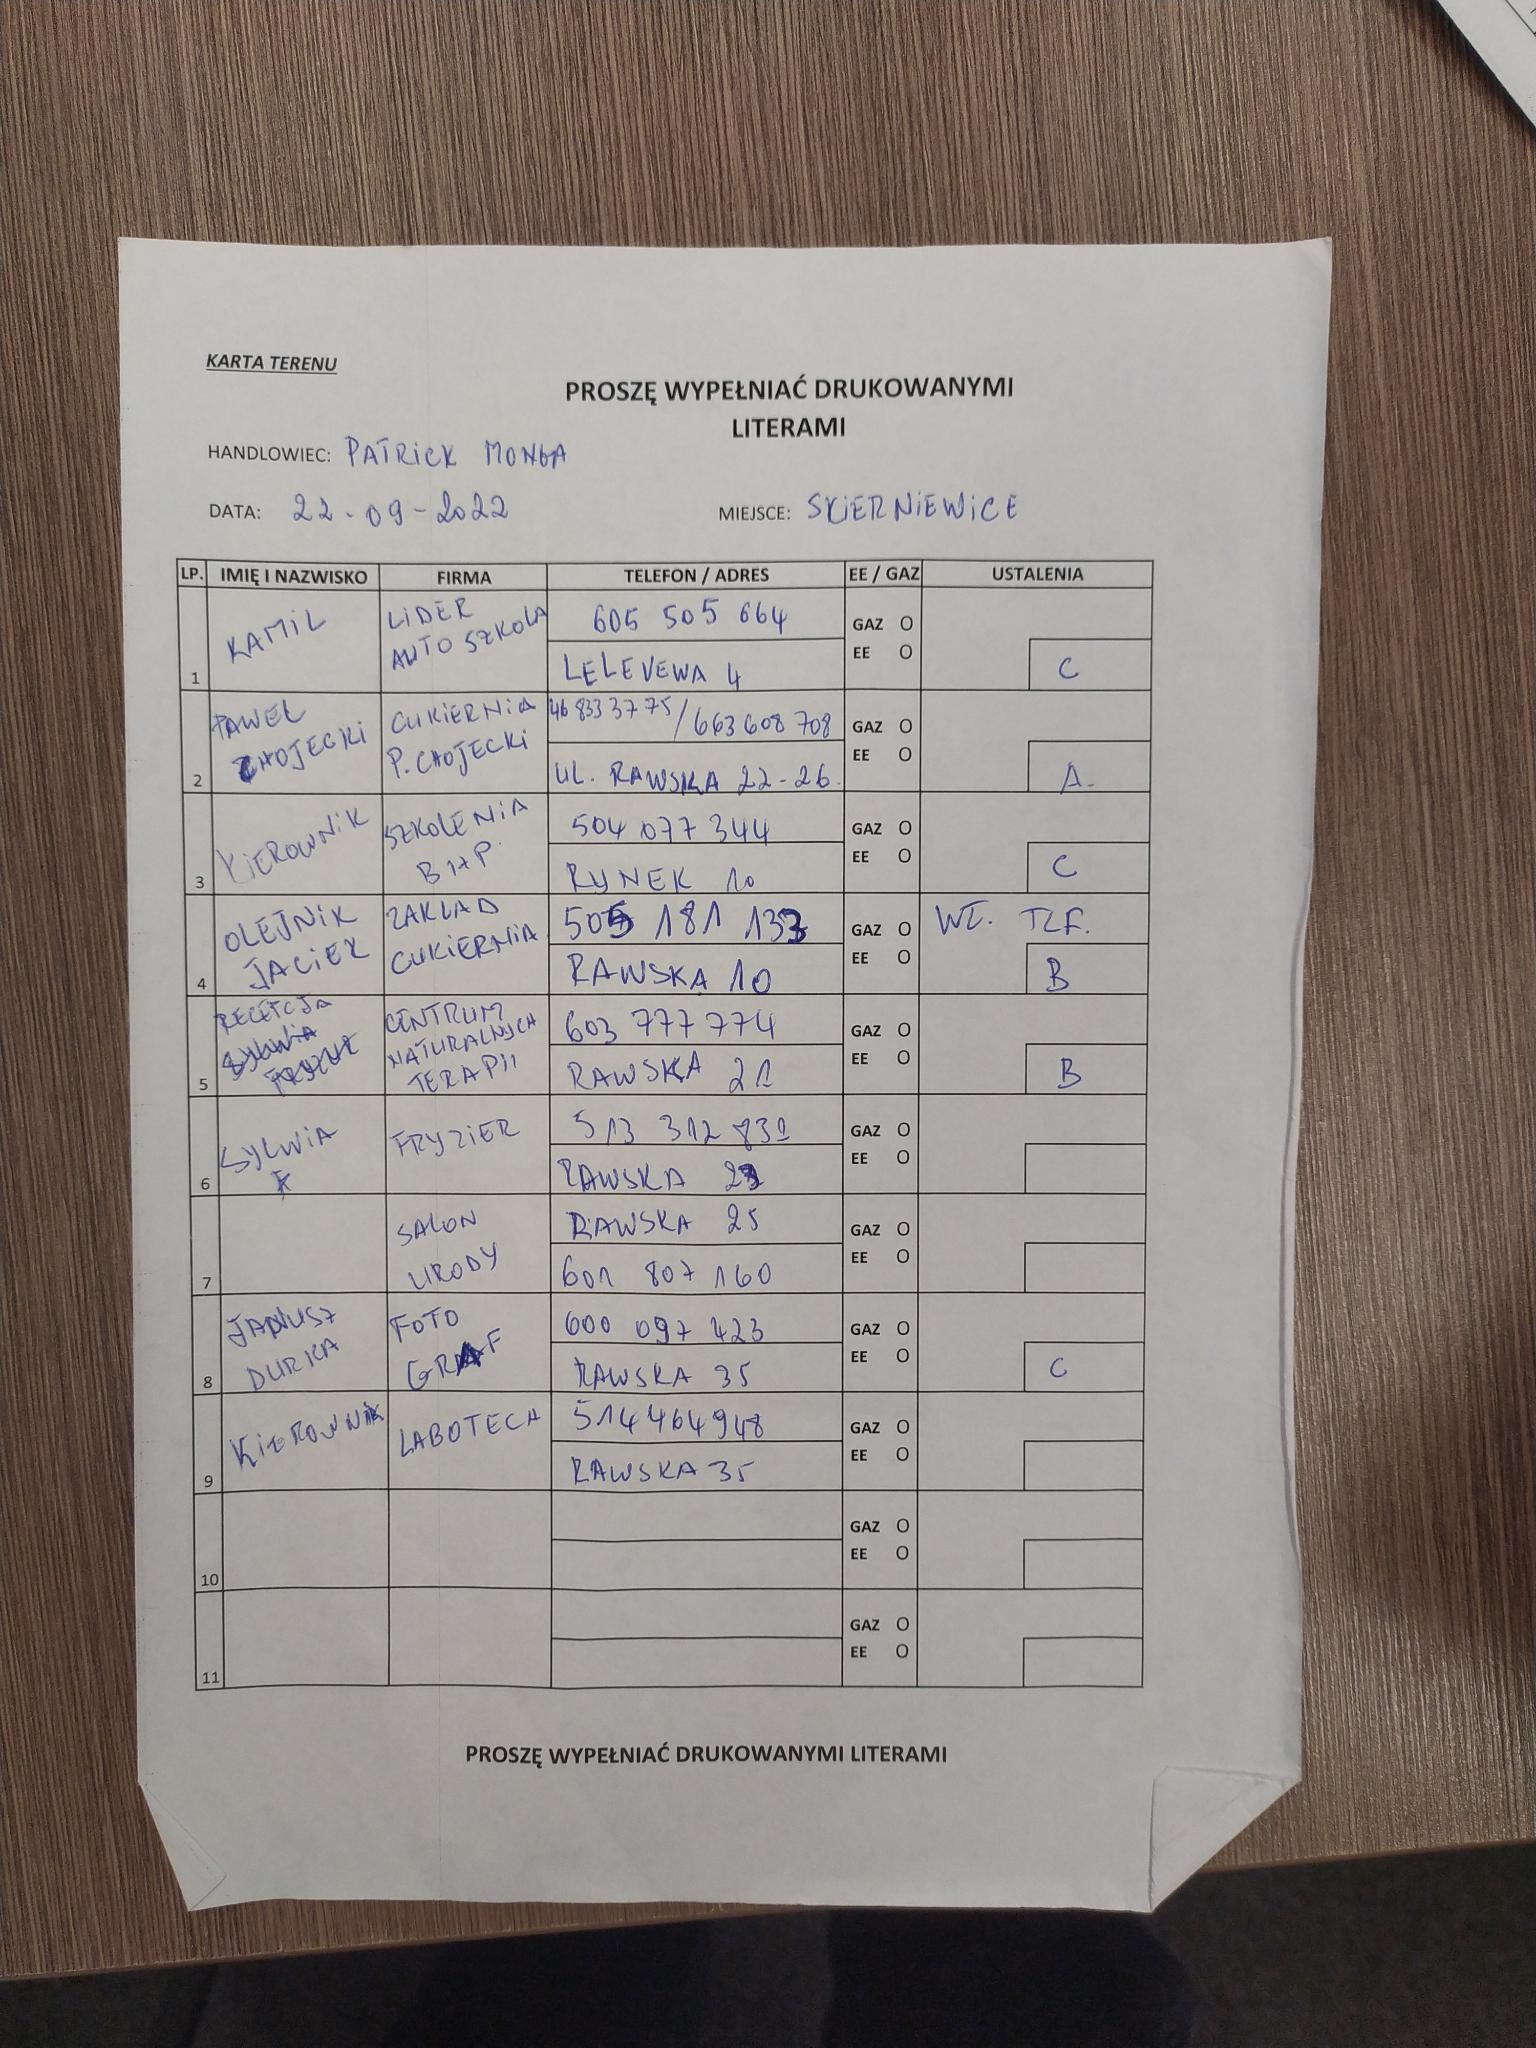 KARTA TERENU
PROSZĘ WYPEŁNIAĆ DRUKOWANYMI
LITERAMI
HANDLOWIEC: PATRICK MONGA
DATA: 22-09-2022 MIEJSCE: SKIERNIEWICE
LP. IMIĘ I NAZWISKO FIRMA TELEFON / ADRES EE / GAZ USTALENIA
1 KAMIL LIDER AUTO SZKOLA 605 505 664 GAZ O
LELEVEWA 4 EE O C
2 PAWEL CHOJECKI CUKIERNIA P. CHOJECKI 46 833 37 75 / 663 608 708 GAZ O
UL. RAWSKA 22-26. EE O A.
3 KIEROWNIK SZKOLENIA BHP. 504 077 344 GAZ O
RYNEK 10 EE O C
4 OLEJNIK JACIEK ZAKLAD CUKIERNIA. 505 181 133 GAZ O WŁ. TLF.
RAWSKA 10 EE O B
5 RECETCJA CENTRUM NATURALNYCH TERAPII 603 777 774 GAZ O
RAWSKA 21 EE O B
6 SYLWIA FRYZIER 513 312 831 GAZ O
RAWSKA 23 EE O
7 SALON URODY RAWSKA 25 GAZ O
601 807 160 EE O
8 JANUSZ DURKA FOTO GRAF 600 097 423 GAZ O
RAWSKA 35 EE O C
9 KIEROWNIK LABOTECH 514 464 948 GAZ O
RAWSKA 35 EE O
10 GAZ O
EE O
11 GAZ O
EE O
PROSZĘ WYPEŁNIAĆ DRUKOWANYMI LITERAMI